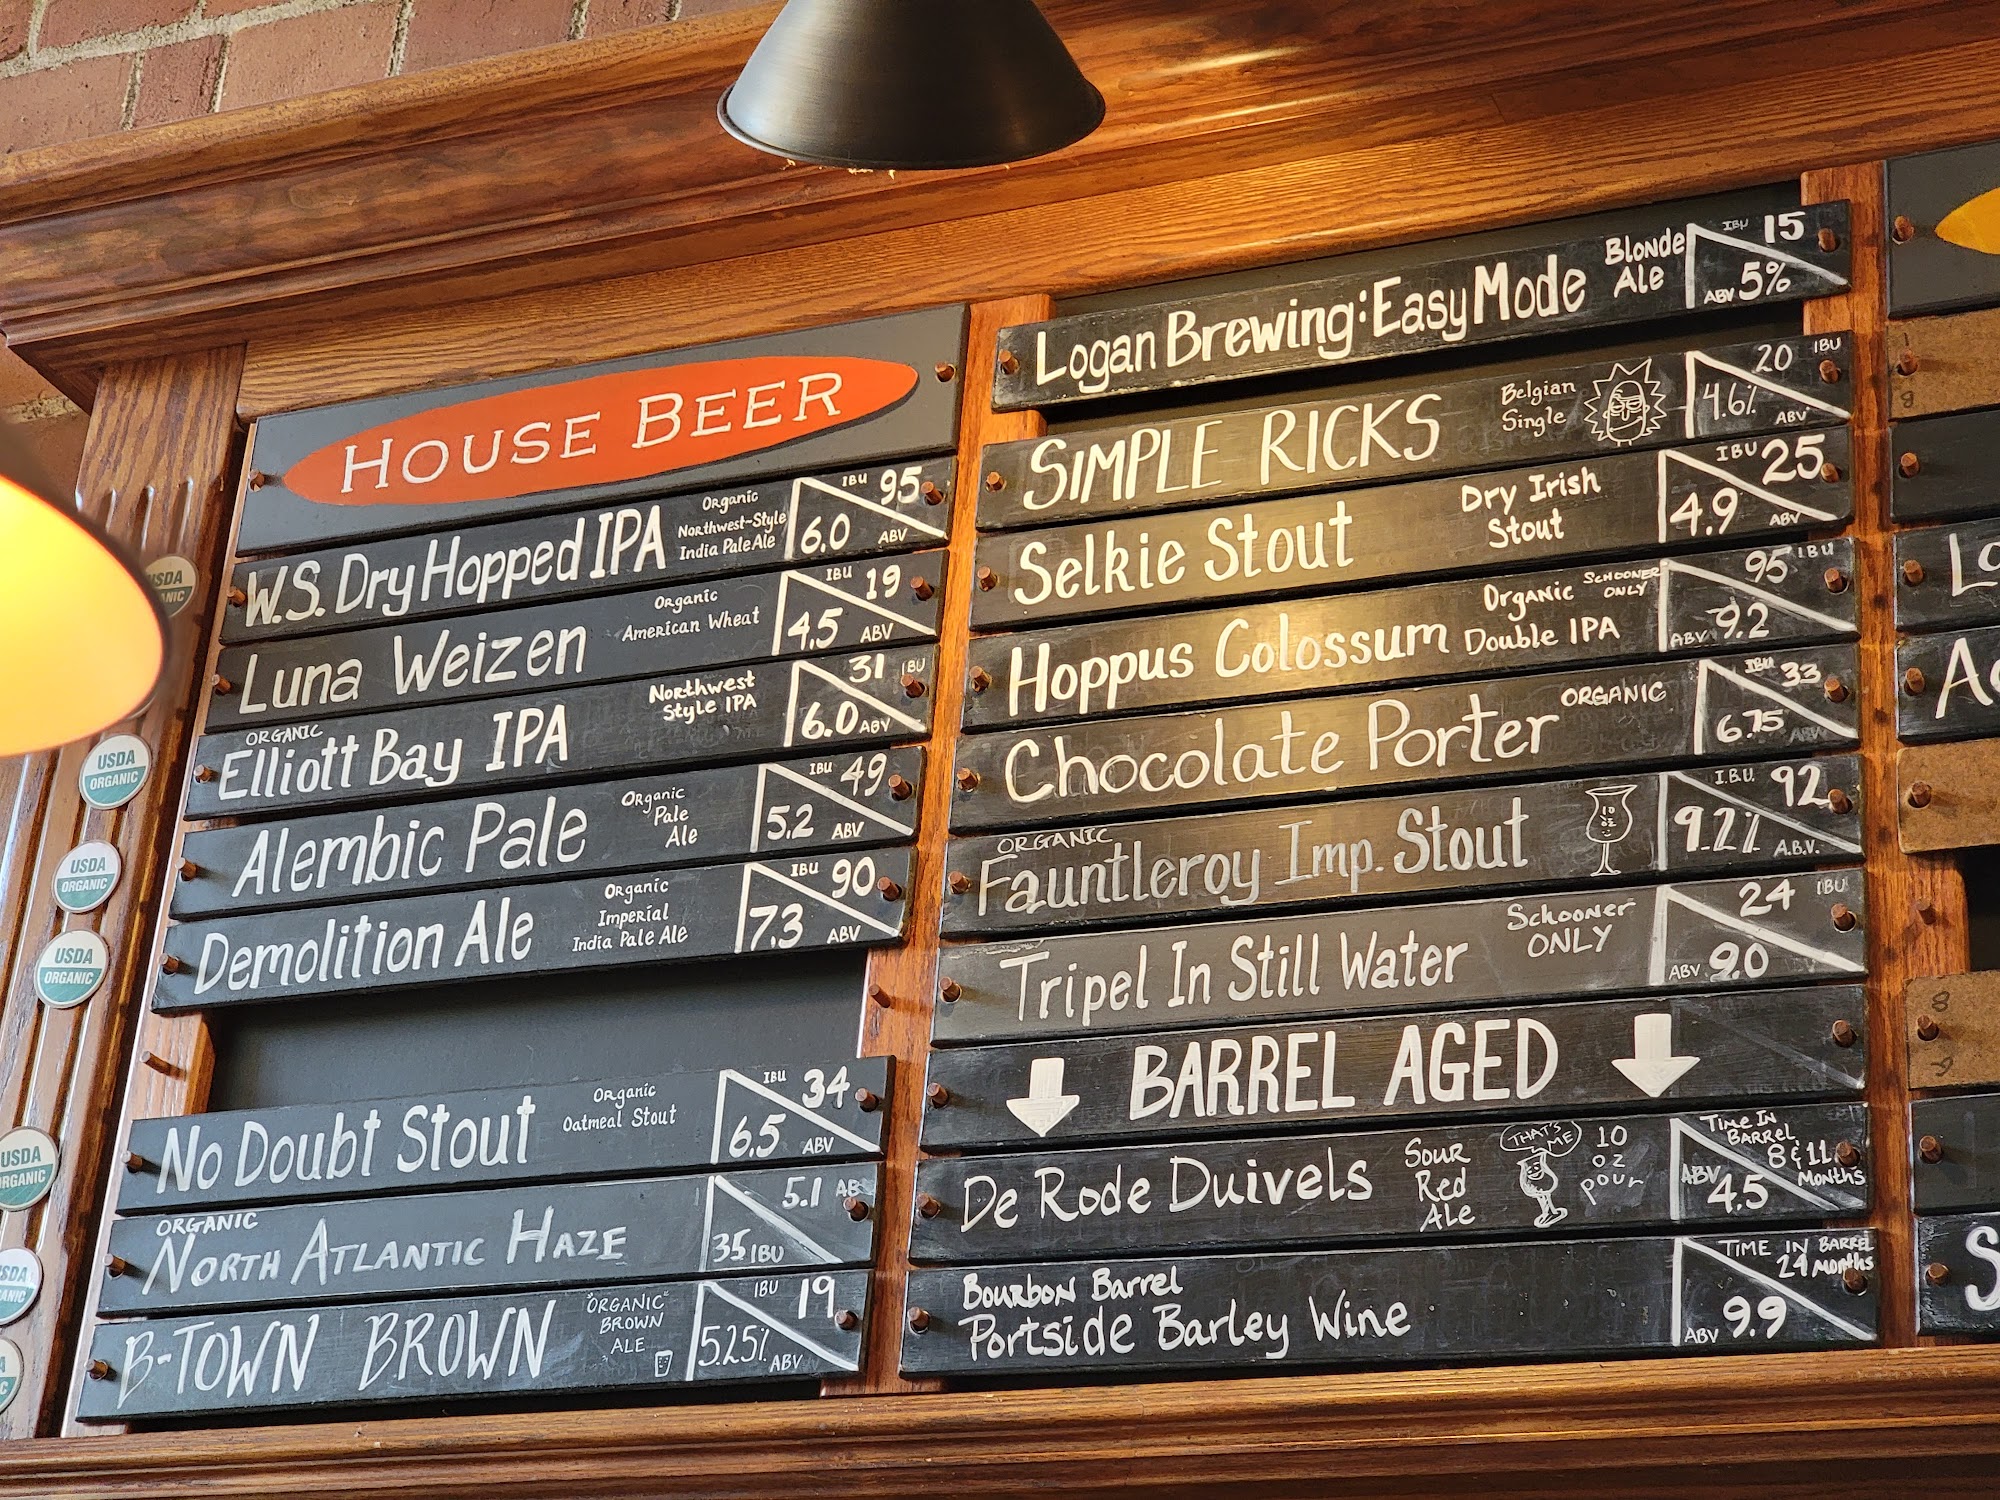 HOUSE BEER
W.S. Dry Hopped IPA
Organic
Northwest-Style
India Pale Ale
IBU 95
6.0 ABV
Luna Weizen
Organic
American Wheat
IBU 19
4.5 ABV
ORGANIC
Elliott Bay IPA
Northwest
Style IPA
31 IBU
6.0 ABV
Alembic Pale
Organic
Pale
Ale
IBU 49
5.2 ABV
Demolition Ale
Organic
Imperial
India Pale Ale
IBU 90
7.3 ABV
No Doubt Stout
Organic
Oatmeal Stout
IBU 34
6.5 ABV
ORGANIC
NORTH ATLANTIC HAZE
5.1 AB
35 IBU
B-TOWN BROWN
"ORGANIC"
BROWN
ALE
IBU 19
5.25% ABV
Logan Brewing: Easy Mode
Blonde
Ale
IBU 15
ABV 5%
SIMPLE RICKS
Belgian
Single
20 IBU
4.6% ABV
Selkie Stout
Dry Irish
Stout
IBU 25
4.9 ABV
Hoppus Colossum
Organic
Double IPA
SCHOONER
ONLY
95 IBU
ABV 9.2
Chocolate Porter
ORGANIC
IBU 33
6.75 ABV
ORGANIC
Fauntleroy Imp. Stout
10
OZ
I.B.U. 92
9.2% A.B.V.
Tripel In Still Water
Schooner
ONLY
24 IBU
ABV 9.0
BARREL AGED
De Rode Duivels
Sour
Red
Ale
THAT'S
ME
10
OZ
pour
Time In
Barrel
8 & 11
Months
ABV 4.5
Bourbon Barrel
Portside Barley Wine
TIME IN BARREL
24 MONTHS
ABV 9.9
USDA
ORGANIC
USDA
ORGANIC
USDA
ORGANIC
USDA
ORGANIC